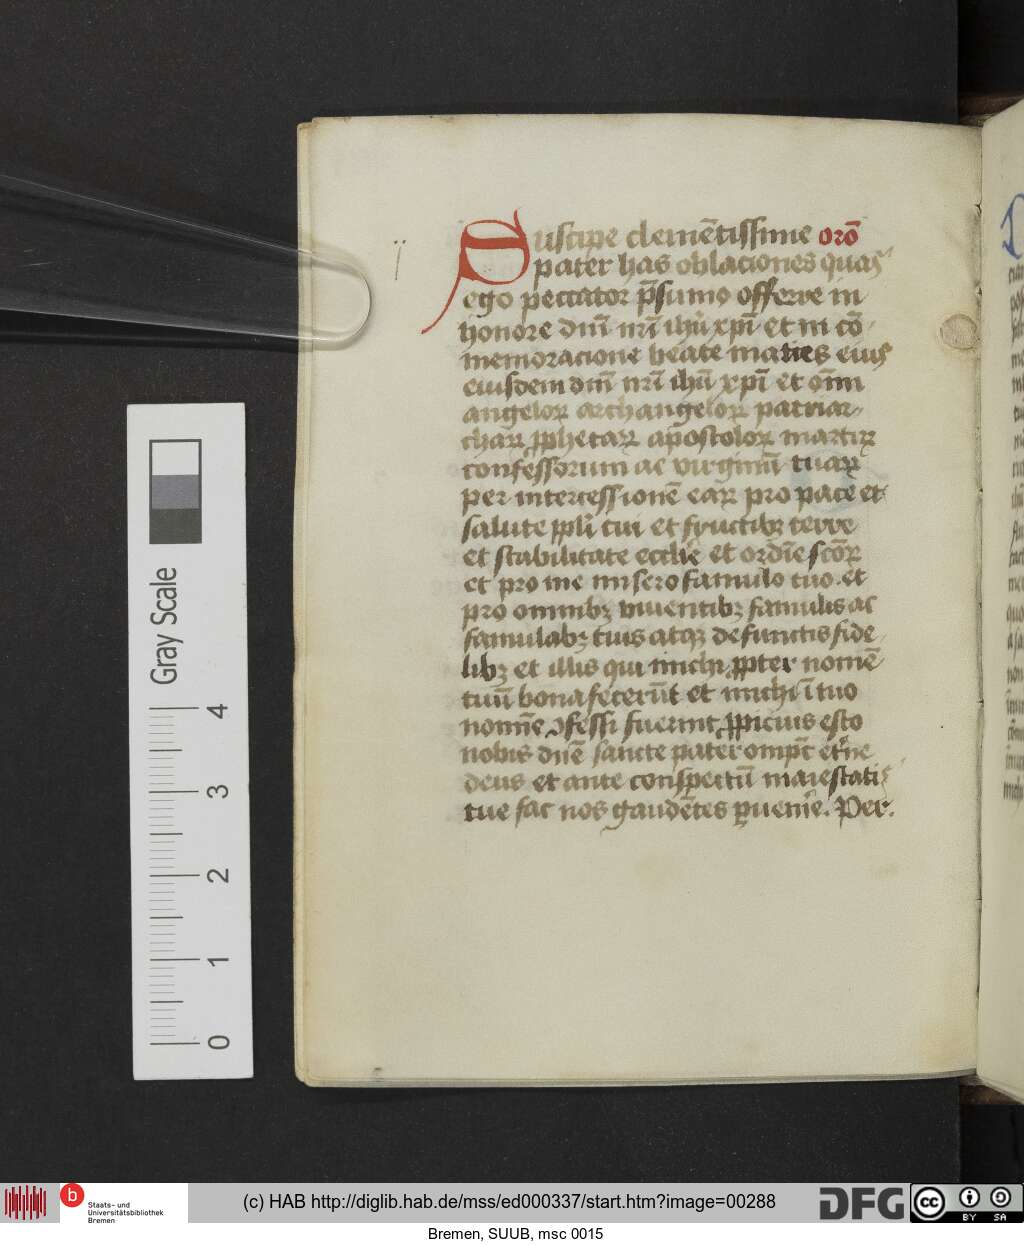 ij
Suscipe clemētissime orō
pater has oblaciones quas
ego peccator p̄sumo offerre in
honore dn̄i nr̄i ihū xp̄i et in cō
memoracione beate matris eius
eiusdem dn̄i nr̄i ihū xp̄i et om̄i
angeloꝝ archangeloꝝ patriar
chaꝝ ꝓphetaꝝ apostoloꝝ martiꝝ
confessorum ac virginū tuaꝝ
per intercessionē eaꝝ pro pace et
salute ppli tui et fructibꝫ terre
et stabilitate eccl̄ie et ordīe scōꝝ
et pro me misero famulo tuo et
pro omnibꝫ viuentibꝫ famulis ac
famulabꝫ tuis atqꝫ defunctis fide
libꝫ et illis qui michi ꝓpter nomē
tuū bona fecerūt et michi ī tuo
nomīe ꝯfessi fuerint ꝓpicius esto
nobis dn̄e sancte pater omp̄t et̄ne
deus et ante conspectū maiestatis
tue fac nos gaudētes ꝑuenir̄e. Per.
Gray Scale
4
3
2
1
0
b
Staats- und
Universitätsbibliothek
Bremen
(c) HAB http://diglib.hab.de/mss/ed000337/start.htm?image=00288
DFG
cc
BY SA
Bremen, SUUB, msc 0015